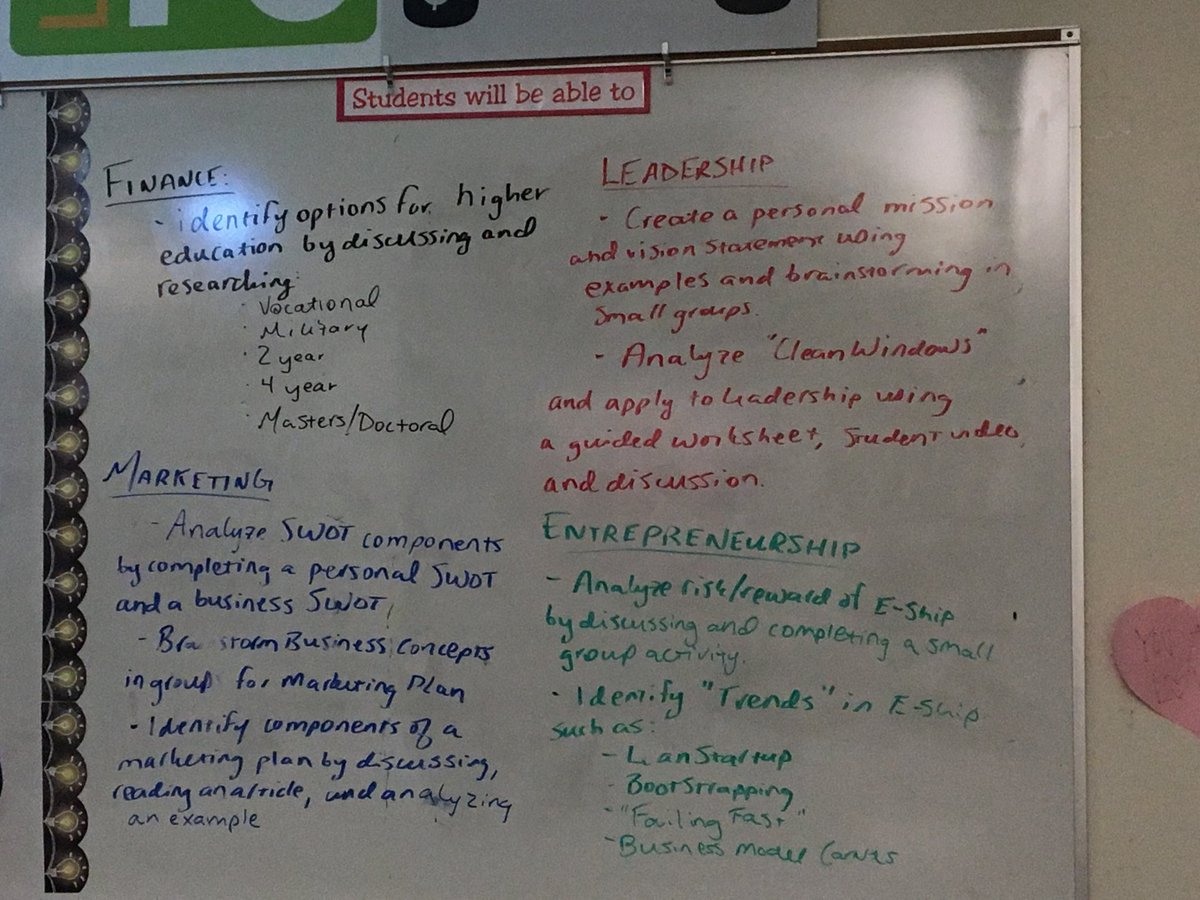 Students will be able to
FINANCE:
- identify options for higher
education by discussing and
researching:
· Vocational
· Military
· 2 year
· 4 year
· Masters/Doctoral
MARKETING
- Analyze SWOT components
by completing a personal SWOT
and a business SWOT!
- Bra storm Business concepts
in group for Marketing Plan
· Identify components of a
marketing plan by discussing,
reading an article, and analyzing
an example
LEADERSHIP
- Create a personal mission
and vision statement using
examples and brainstorming in
small groups.
- Analyze "Clean Windows"
and apply to leadership using
a guided worksheet, student video,
and discussion.
ENTREPRENEURSHIP
- Analyze risk/reward of E-Ship
by discussing and completing a small
group activity.
· Identify "Trends" in E-Ship
such as:
- Lean Startup
- Bootstrapping
- "Failing Fast"
- Business Model Canvas